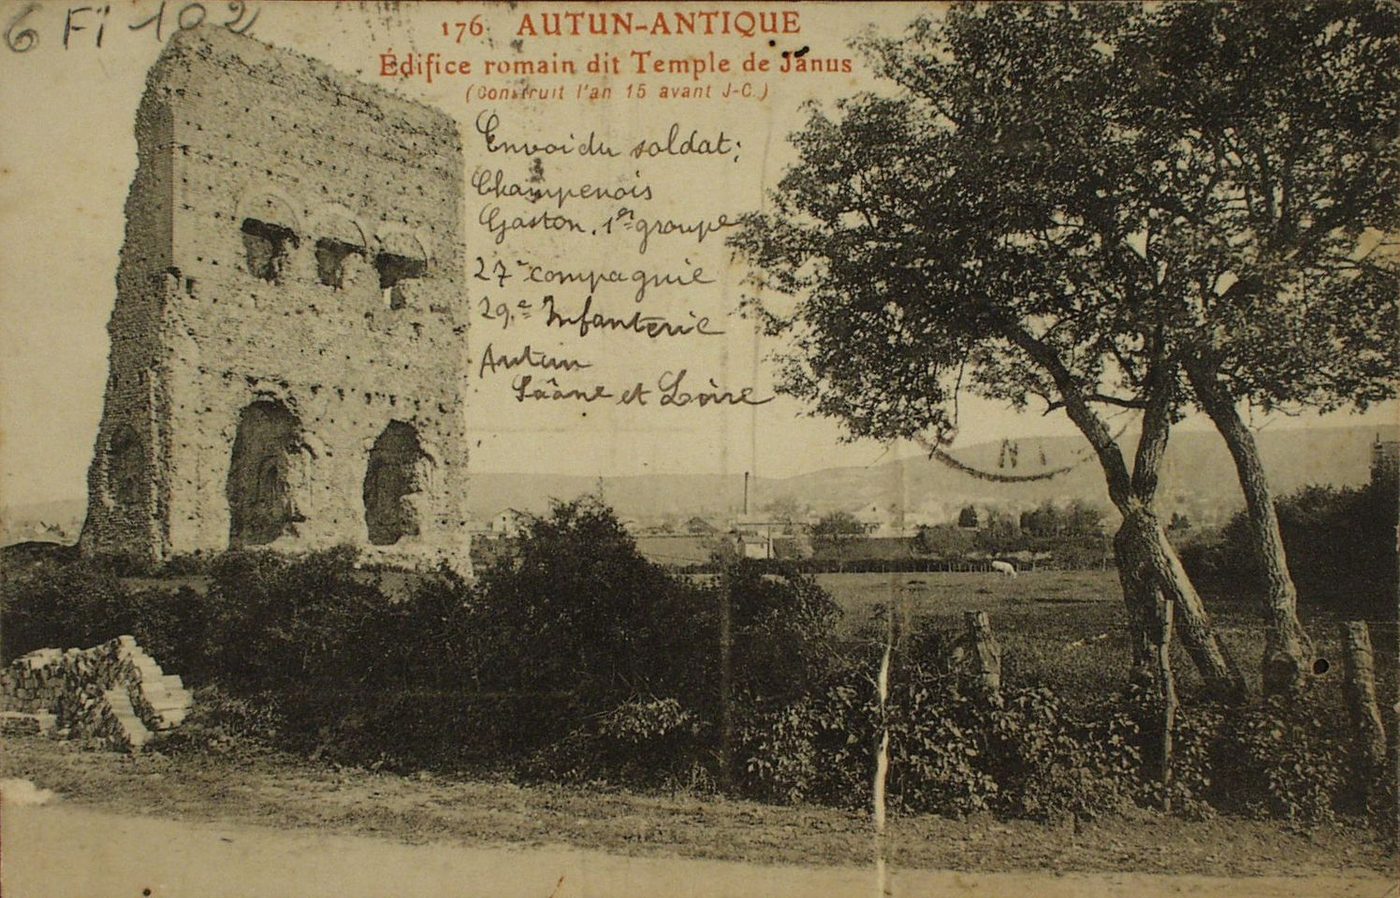 6 Fi 102
176. AUTUN-ANTIQUE
Édifice romain dit Temple de Janus
(Construit l'an 15 avant J-C.)
Envoi du soldat;
Champenois
Gaston. 1er groupe
27e compagnie
29.e Infanterie
Autun
Saâne et Loire